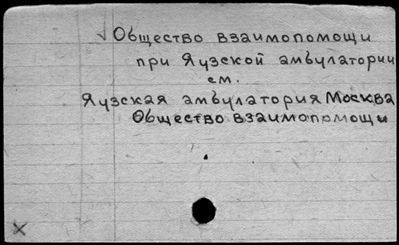 Общество взаимопомощи
при Яузской амбулатории
см.
Яузская амбулатория Москва
Общество взаимопомощи